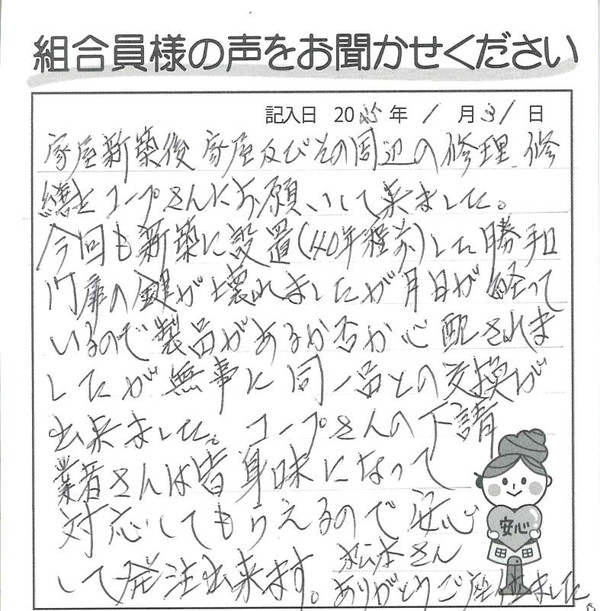 組合員様の声をお聞かせください
記入日 2025年 1月31日
家屋新築後家屋及びその周辺の修理、修
繕をコープさんにお願いして来ました。
今回も新築に設置(40年程前)した勝手口
門扉の鍵が壊れましたが月日が経って
いるので製品があるか否か心配されま
したが無事に同一品との交換が
出来ました。コープさんの下請
業者さんは皆身味になって
対応してもらえるので安心
して発注出来ます。松本さん
ありがとうご座居ました。
安心